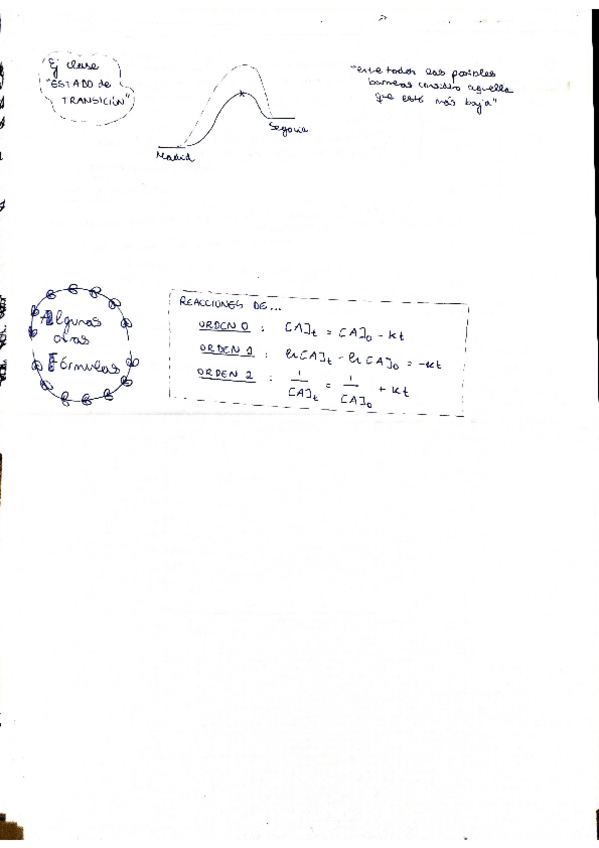 Ej clase
"ESTADO de
TRANSICIÓN"
Madrid
Segovia
"entre todas las posibles
barreras considero aquella
que esté más baja"
Algunas
otras
Fórmulas
REACCIONES DE...
ORDEN 0 : [A]t = [A]0 - kt
ORDEN 1 : ln[A]t - ln[A]0 = -kt
ORDEN 2 : 1/[A]t = 1/[A]0 + kt